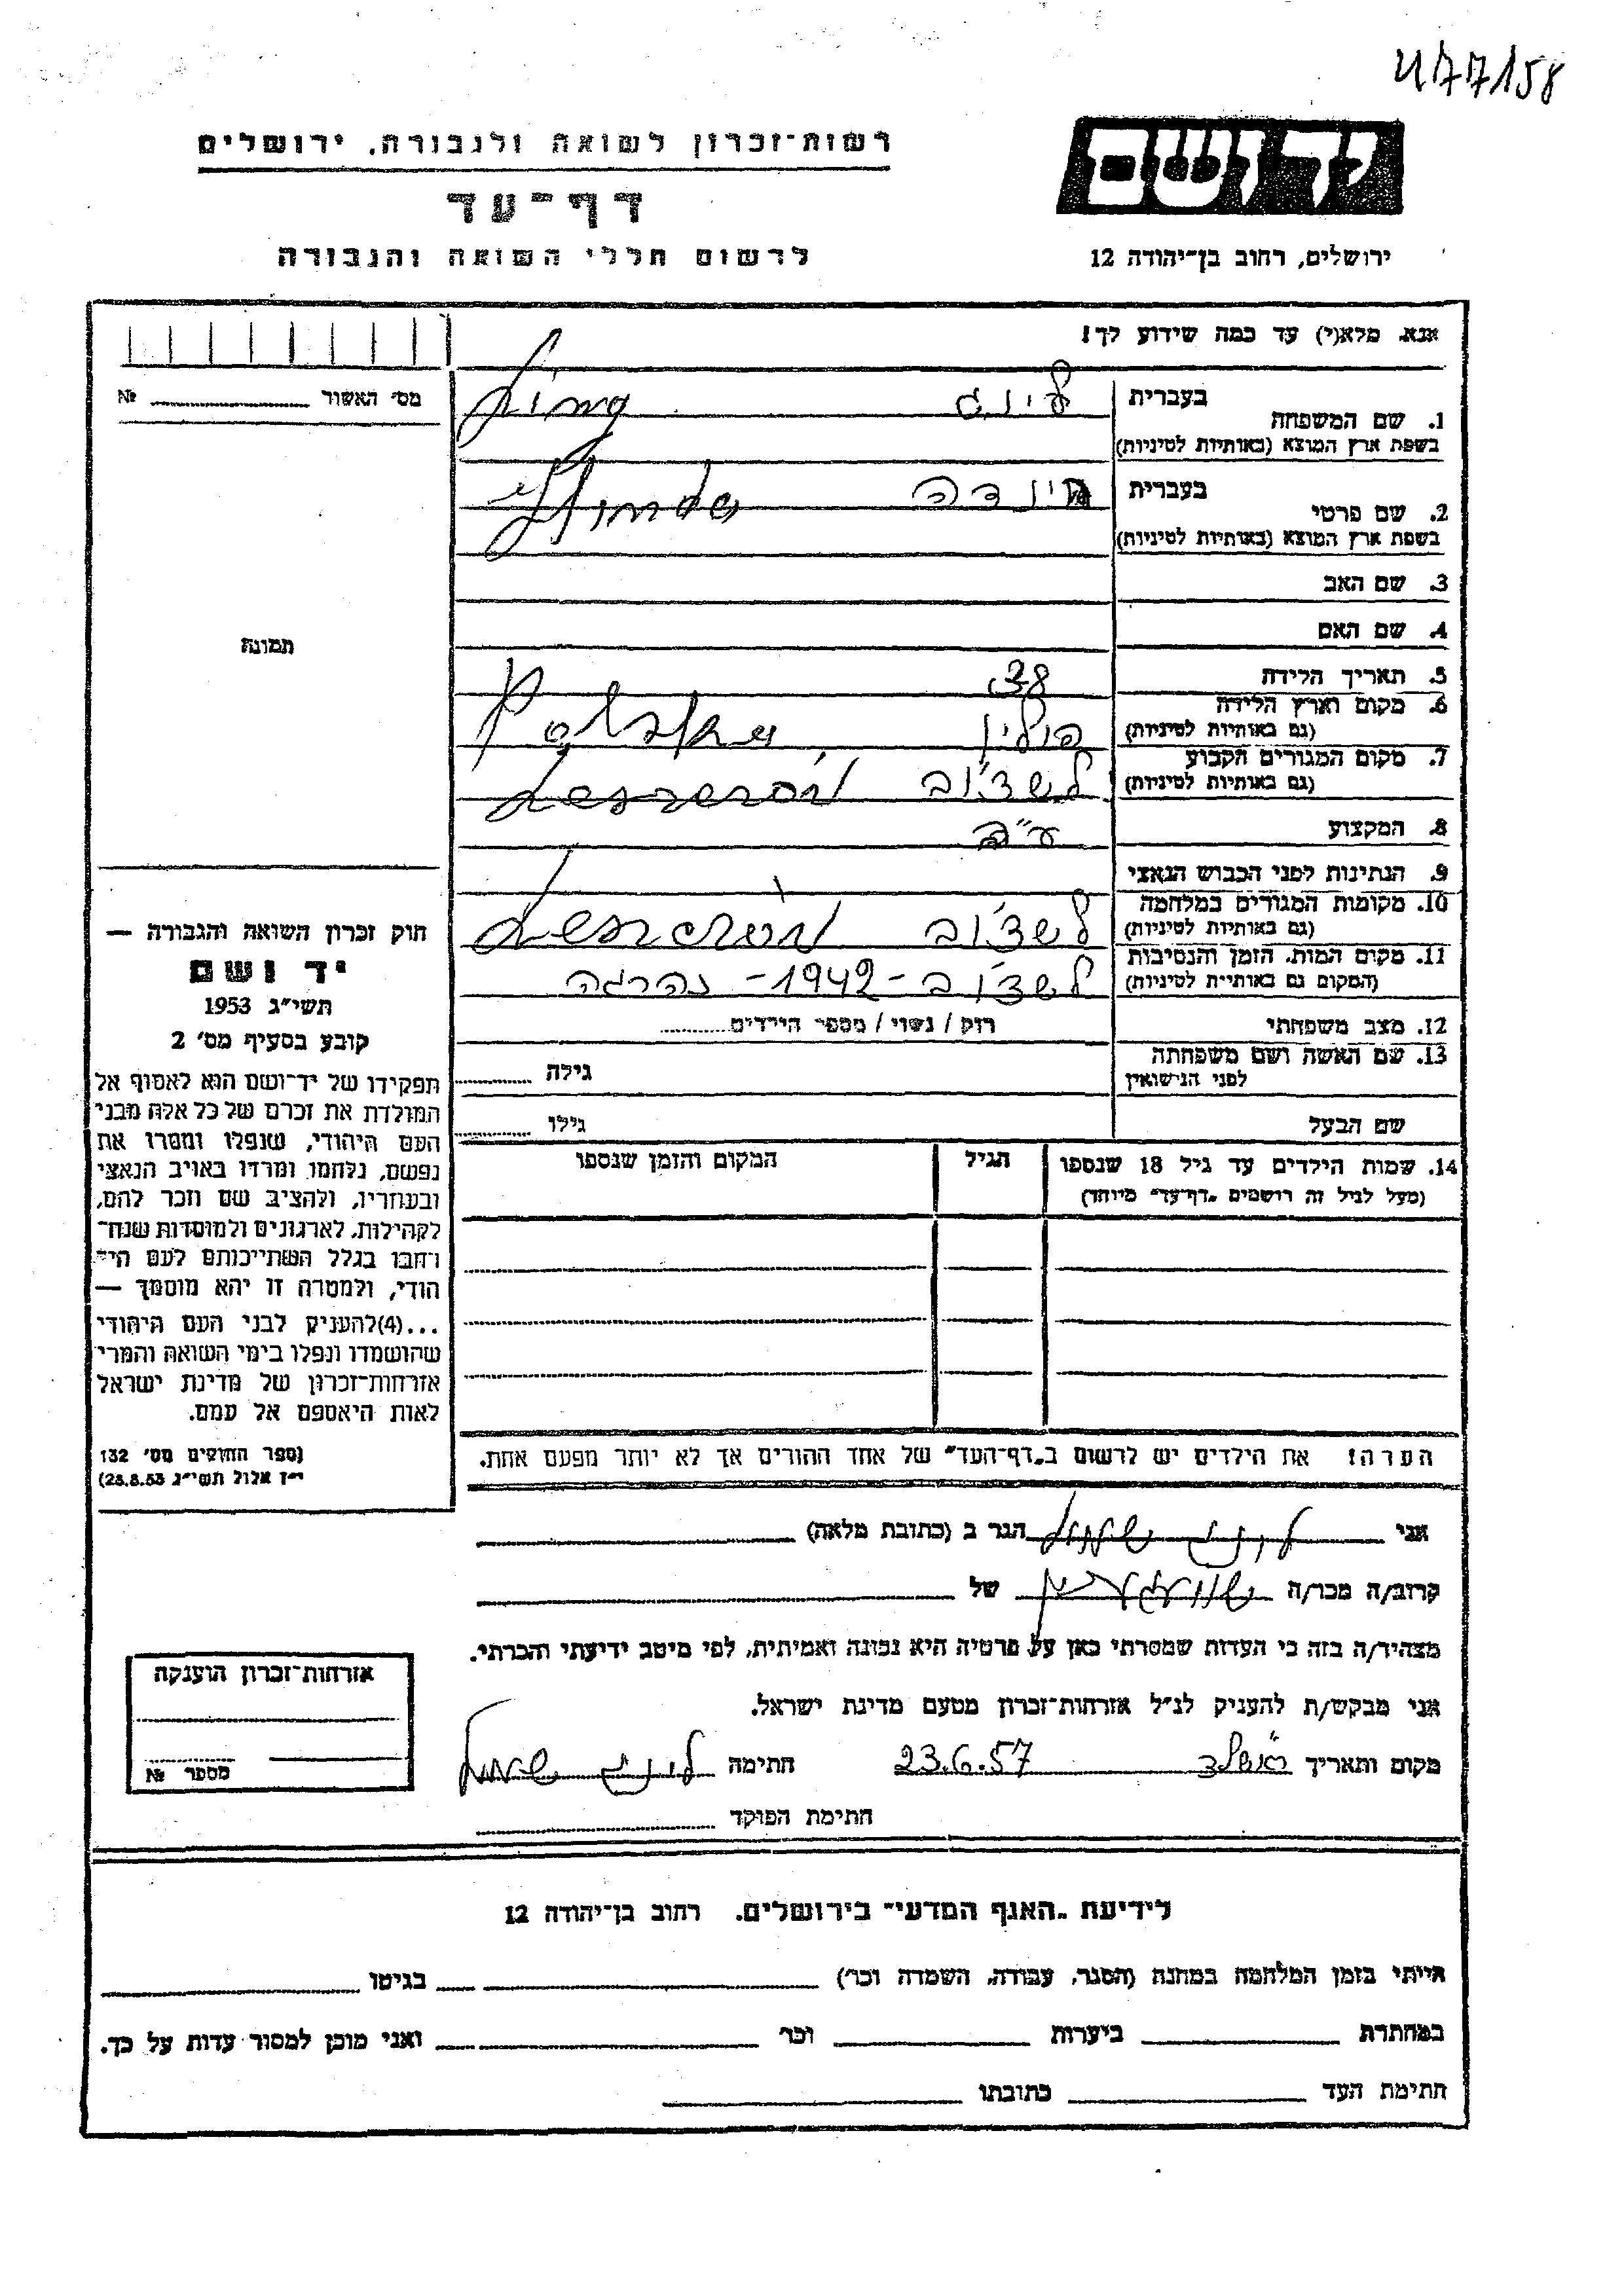 רשות־זכרון לשואה ולגבורה, ירושלים
יד ושם
דף־עד
לרשום חללי השואה והגבורה
ירושלים, רחוב בן־יהודה 12
אנא, מלא(י) עד כמה שידוע לך!
מס׳ האשור № 
1. שם המשפחה
בעברית לינג Ling
בשפת ארץ המוצא (באותיות לטיניות)
2. שם פרטי
בעברית הינדה
בשפת ארץ המוצא (באותיות לטיניות)
3. שם האב
4. שם האם
תמונה
5. תאריך הלידה 38
6. מקום וארץ הלידה פולין Polska
(גם באותיות לטיניות)
7. מקום המגורים הקבוע לשצ'וב
(גם באותיות לטיניות)
8. המקצוע
9. הנתינות לפני הכבוש הנאצי
10. מקומות המגורים במלחמה לשצ'וב
(גם באותיות לטיניות)
11. מקום המות, הזמן והנסיבות לשצ'וב - 1942 - נהרגה
(המקום גם באותיות לטיניות)
12. מצב משפחתי רוק / נשוי / מספר הילדים
13. שם האשה ושם משפחתה גילה
לפני הנישואין
שם הבעל גילו
14. שמות הילדים עד גיל 18 שנספו הגיל המקום והזמן שנספו
(מעל לגיל זה רושמים „דף־עד״ מיוחד)
חוק זכרון השואה והגבורה —
יד ושם
תשי״ג 1953
קובע בסעיף מס׳ 2
תפקידו של יד־ושם הוא לאסוף אל
המולדת את זכרם של כל אלה מבני
העם היהודי, שנפלו ומסרו את
נפשם, נלחמו ומרדו באויב הנאצי
ובעוזריו, ולהציב שם וזכר להם,
לקהילות, לארגונים ולמוסדות שנח־
רחבו בגלל השתייכותם לעם הי־
הודי, ולמטרה זו יהא מוסמך —
...(4)להעניק לבני העם היהודי
שהושמדו ונפלו בימי השואה והמרי
אזרחות־זכרון של מדינת ישראל
לאות היאספם אל עמם.
(ספר החוקים מס׳ 132
י״ז אלול תשי״ג 28.8.53)
הערה! את הילדים יש לרשום ב„דף־העד״ של אחד ההורים אך לא יותר מפעם אחת.
אני לינג שמואל הגר ב (כתובת מלאה)
קרוב/ה מכר/ה של
מצהיר/ה בזה כי העדות שמסרתי כאן על פרטיה היא נכונה ואמיתית, לפי מיטב ידיעתי והכרתי.
אני מבקש/ת להעניק לנ״ל אזרחות־זכרון מטעם מדינת ישראל.
מקום ותאריך 23.6.57 חתימה לינג שמואל
חתימת הפוקד
אזרחות־זכרון הוענקה
מספר №
לידיעת „האגף המדעי״ בירושלים, רחוב בן־יהודה 12
הייתי בזמן המלחמה במחנה (הסגר, עבודה, השמדה וכו׳) בגיטו
במחתרת ביערות וכו׳ ואני מוכן למסור עדות על כך.
חתימת העד כתובתו